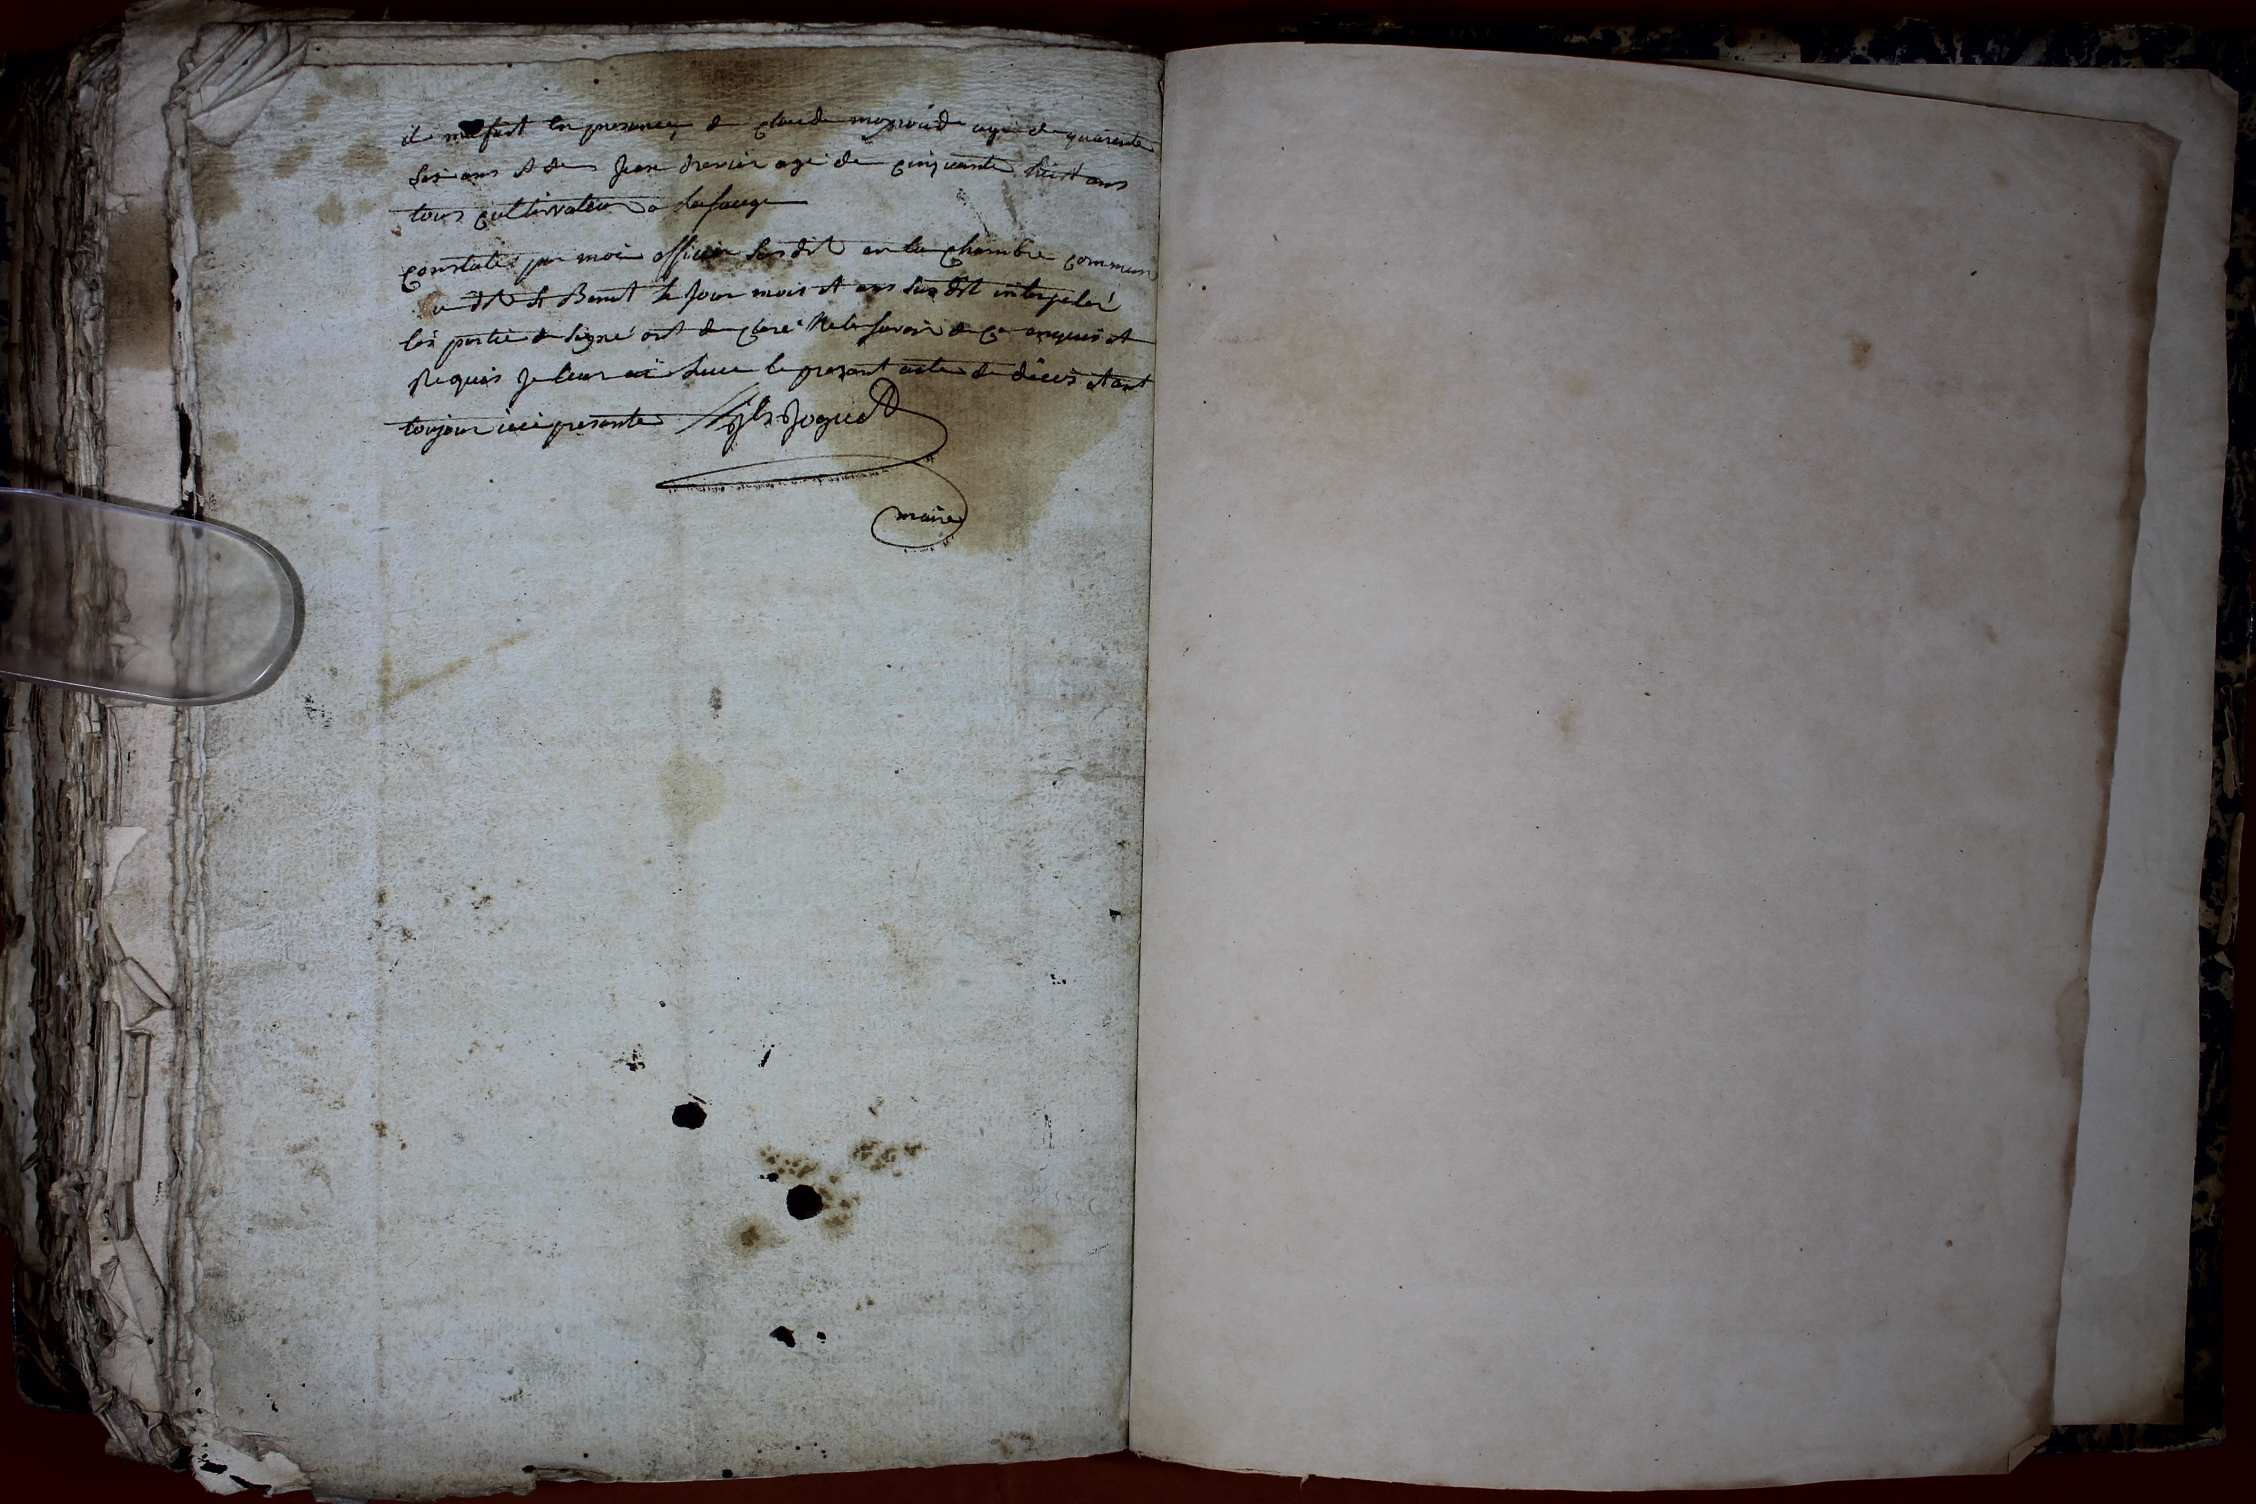 il ma fait en presence de claude mognoud age de quarente
six ans et de Jean drevier age de cinquante huit ans
tous cultivateur a
constaté par moi officier susdit en la chambre commun
du dit St Benet le jour mois et ans sus dit interpelé
les partie de signé ont de claré ne le savoir de ce enquis et
Requis Je leur ai leue le present acte de décés étant
toujour icci presente Joguet
maire